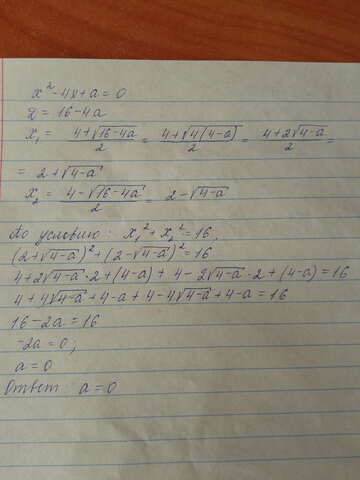 x² - 4x + a = 0
D = 16 - 4a
x₁ = (4 + √(16 - 4a))/2 = (4 + √(4(4 - a)))/2 = (4 + 2√(4 - a))/2 =
= 2 + √(4 - a)
x₂ = (4 - √(16 - 4a))/2 = 2 - √(4 - a)
По условию: x₁² + x₂² = 16,
(2 + √(4 - a))² + (2 - √(4 - a))² = 16
4 + 2√(4 - a) · 2 + (4 - a) + 4 - 2√(4 - a) · 2 + (4 - a) = 16
4 + 4√(4 - a) + 4 - a + 4 - 4√(4 - a) + 4 - a = 16
16 - 2a = 16
-2a = 0;
a = 0
Ответ: a = 0